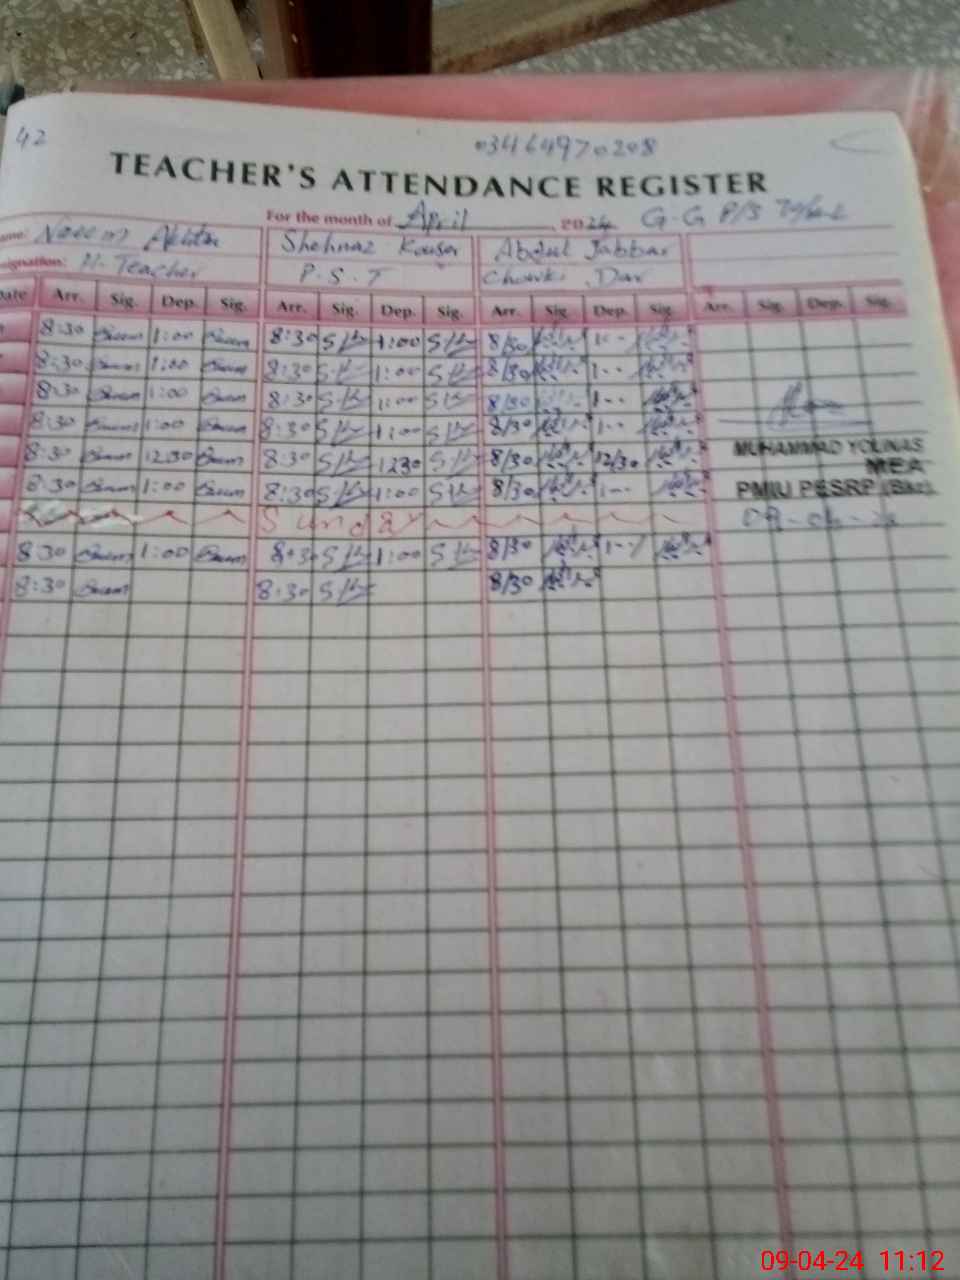 42
03464970208
TEACHER'S ATTENDANCE REGISTER
For the month of April 2024 G-G P/S
Name: Naeem Akhtar Shehnaz Kouser Abdul Jabbar
Designation: H-Teacher P.S.T Chowki Dar
Date Arr. Sig. Dep. Sig. Arr. Sig. Dep. Sig. Arr. Sig. Dep. Sig. Arr. Sig. Dep. Sig.
8:30 1:00 8:30 1:00 8/30 1--
8:30 1:00 8:30 1:00 8/30 1--
8:30 1:00 8:30 1:00 8/30 1--
8:30 1:00 8:30 1:00 8/30 1--
8:30 12:30 8:30 1230 8/30 12/30
8:30 1:00 8:30 1:00 8/30 1--
Sunday
8:30 1:00 8:30 1:00 8/30 1--
8:30 8:30 8/30
MUHAMMAD YOUNAS
MEA
PMIU PESRP (Bkr)
09-04-24
09-04-24 11:12